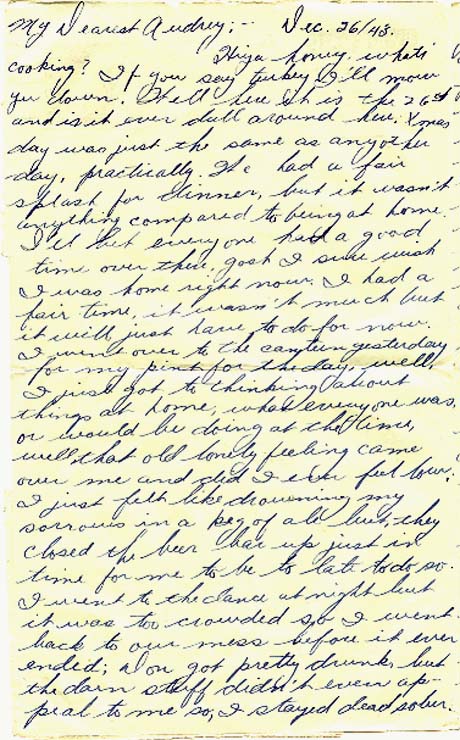 My Dearest Audrey;-- Dec. 26/43.
Hiya honey, what's
cooking? If you say turkey I'll mow
yu down. Well here it is the 26th
and is it ever dull around here, Xmas
day was just the same as anyother
day, practically. We had a fair
splash for dinner, but it wasn't
anything compared to being at home.
I'll bet everyone had a good
time over there, gosh I sure wish
I was home right now. I had a
fair time, it wasn't much but
it will just have to do for now.
I went over to the canteen yesterday
for my pint for the day, well,
I just got to thinking about
things at home, what everyone was,
or would be doing at the time,
well that old lonely feeling came
over me and did I ever feel low.
I just felt like drowning my
sorrows in a keg of ale but, they
closed the beer bar up just in
time for me to be to late to do so.
I went to the dance at night but
it was too crowded so I went
back to our mess before it ever
ended; Don got pretty drunk, but
the darn stuff didn't even ap-
peal to me so, I stayed dead sober.